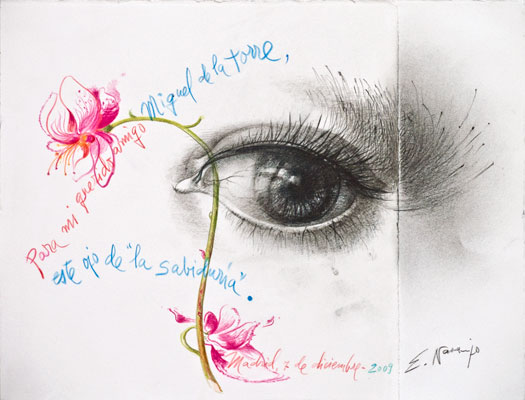 Para mi querido amigo
Miguel de la torre,
este ojo de "la sabiduría".
Madrid, 7 de diciembre - 2009
E. Naranjo